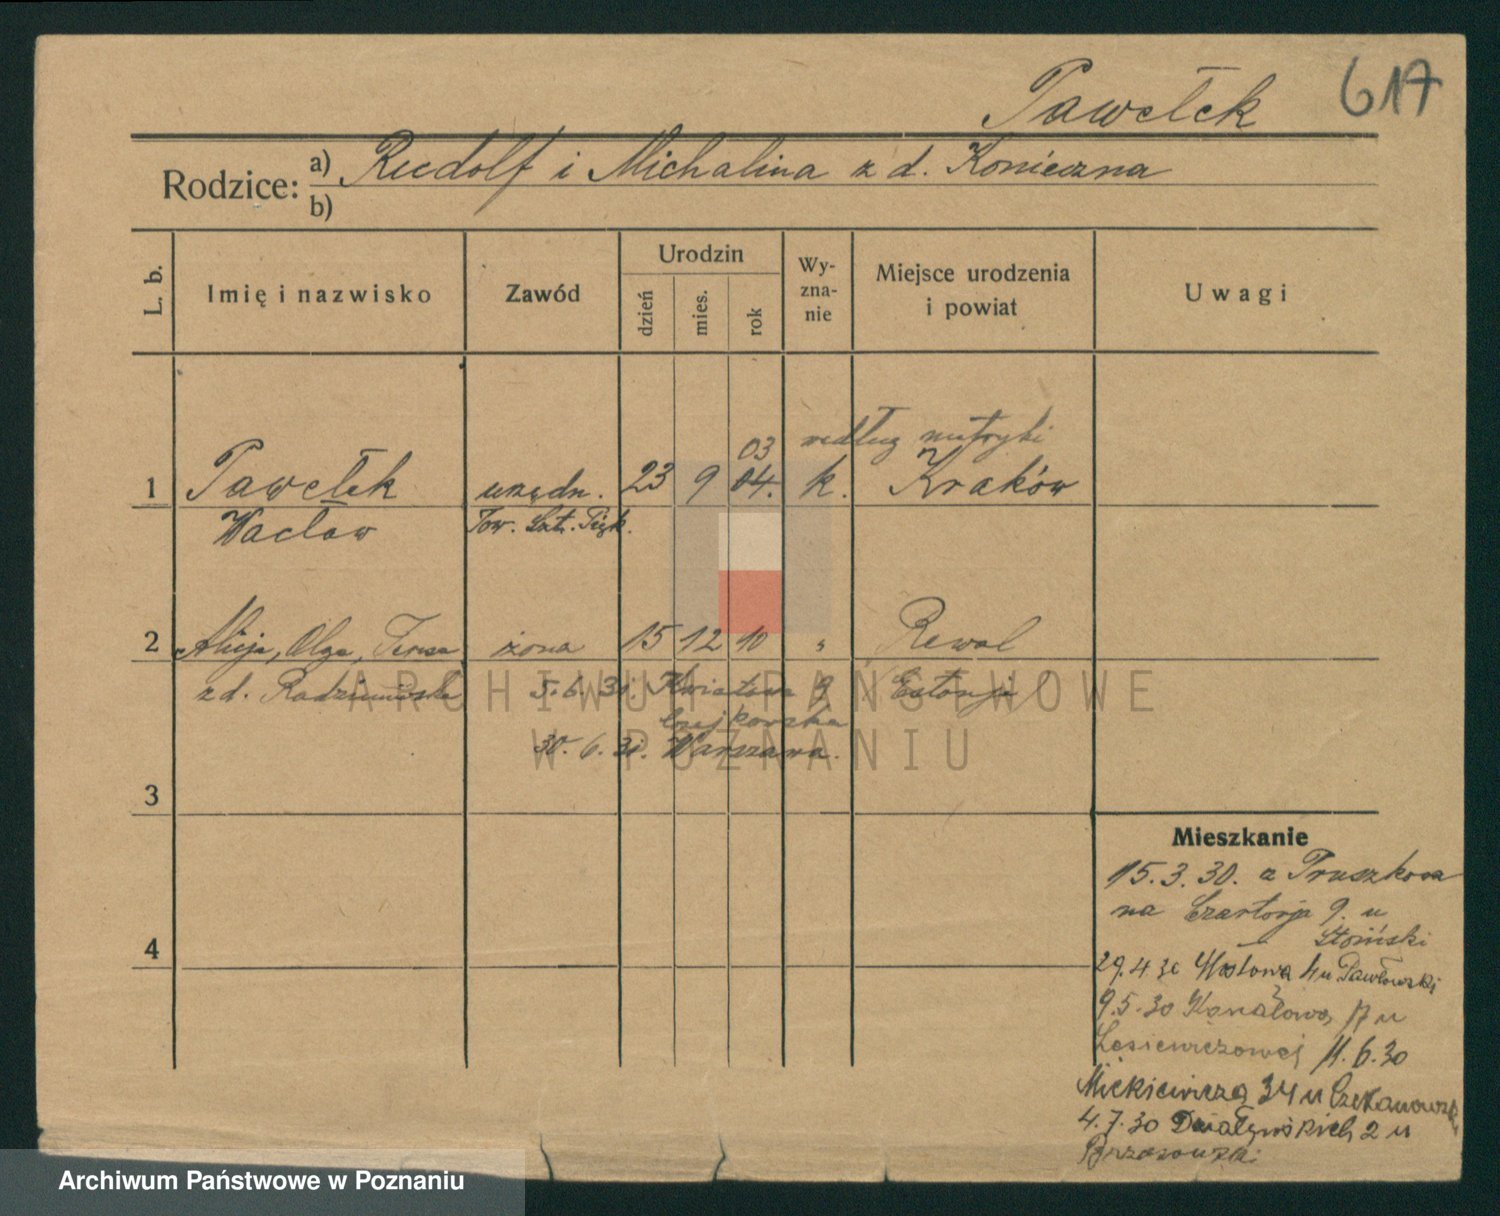 617
Pawełek
Rodzice: a) Rudolf i Michalina z d. Konieczna
b)
L. b.
Imię i nazwisko
Zawód
Urodzin
dzień
mies.
rok
Wy-
zna-
nie
Miejsce urodzenia
i powiat
Uwagi
03 według metryki
1 Pawełek urzędn. 23 9 04. k. Kraków
Wacław Tow. Szt. Pięk.
2 Alicja, Olga, Teresa żona 15 12 10 " Rewal
z d. 5.6.31. Kwiatowa 9 Estonja
30.6.31. Warszawa.
ARCHIWUM PAŃSTWOWE
W POZNANIU
3
4
Mieszkanie
15.3.30. z Pruszkowa
na Czartorja 9. u
Słoiński
29.4.30 Mostowa 4 u Pawłowski
9.5.30 Kanałowa 17 u
Lesiewiczowej 11.6.30
Mickiewicza 34 u
4.7.30 Działyńskich 2 u
Brzozowski
Archiwum Państwowe w Poznaniu